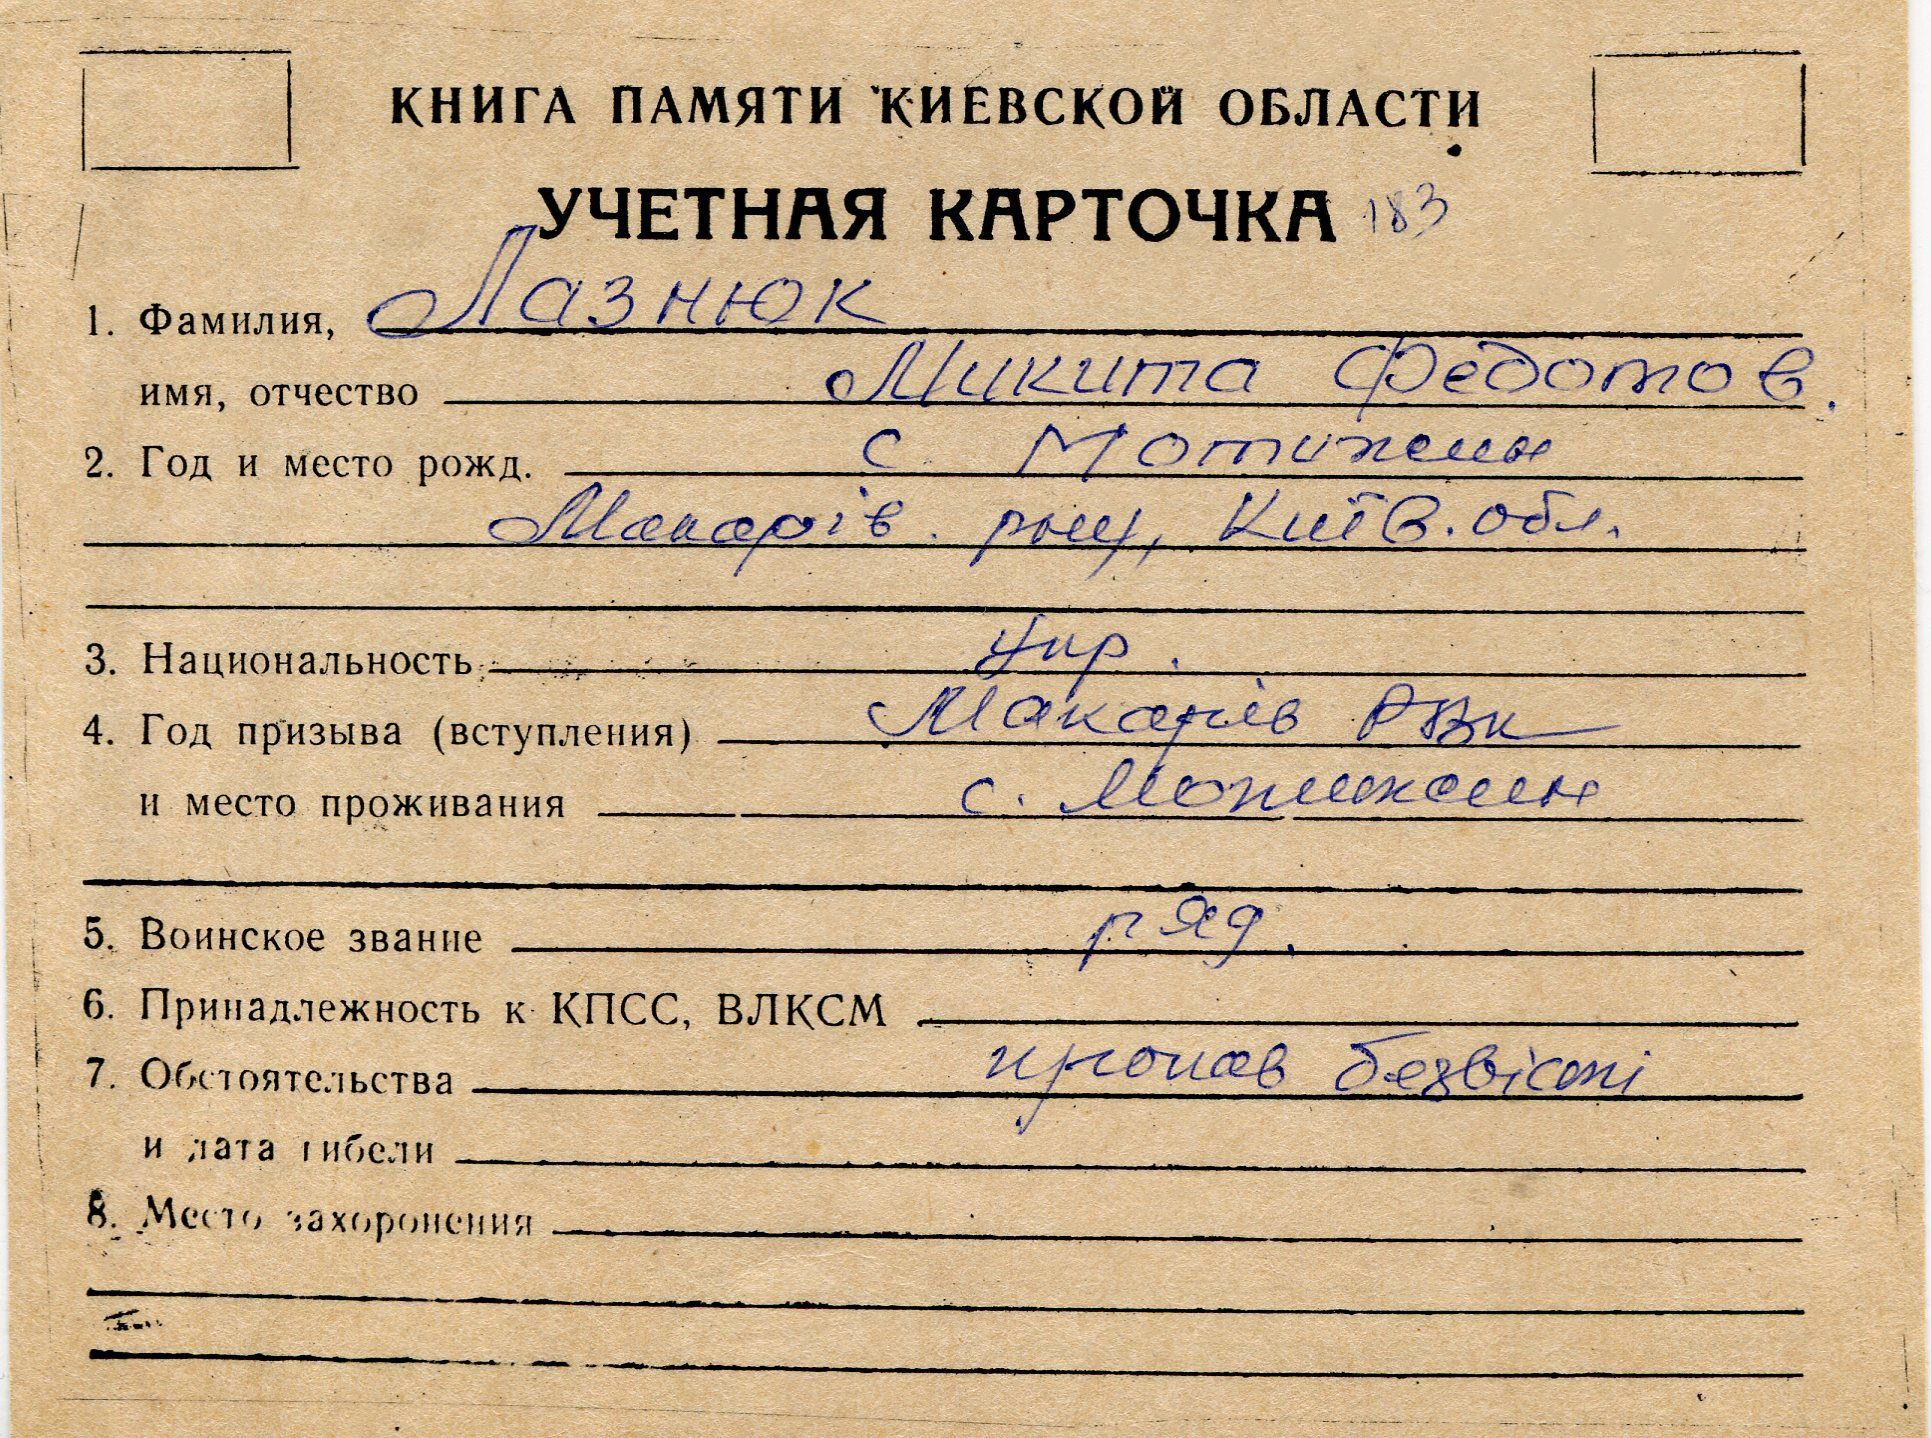 КНИГА ПАМЯТИ КИЕВСКОЙ ОБЛАСТИ
УЧЕТНАЯ КАРТОЧКА 183
1. Фамилия, Лазнюк
имя, отчество Микита Федотов.
2. Год и место рожд. с. Мотижин
Макарів. р-ну, Київ. обл.
3. Национальность укр.
4. Год призыва (вступления) Макарів РВК
и место проживания с. Мотижин
5. Воинское звание ряд.
6. Принадлежность к КПСС, ВЛКСМ
7. Обстоятельства пропав безвісті
и дата гибели
8. Место захоронения